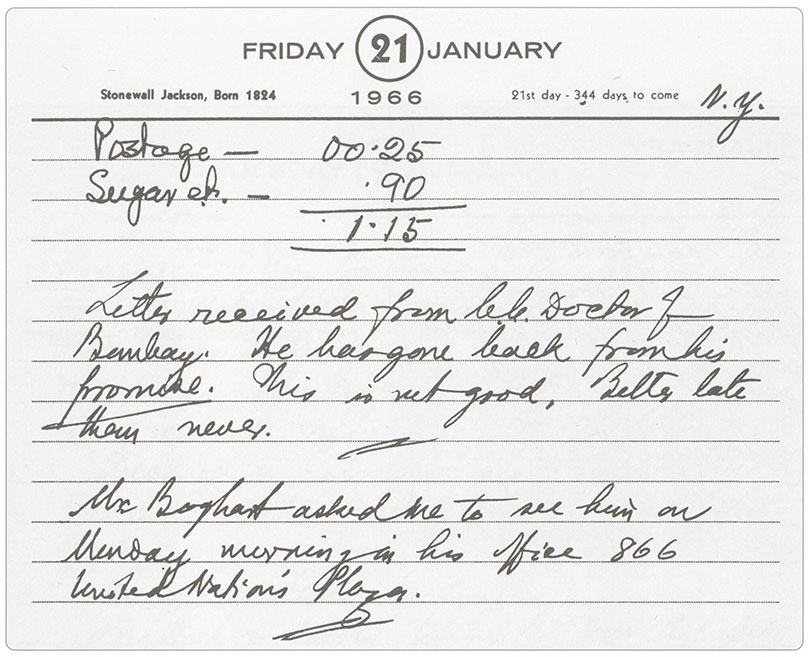 FRIDAY 21 JANUARY
Stonewall Jackson, Born 1824 1966 21st day - 344 days to come N.Y.
Postage — 00.25
Sugar etc. — .90
1.15
Letter received from Doctor of
Bombay. He has gone back from his
promise. This is not good, Better late
than never.
Mr Boghart asked me to see him on
Monday morning in his office 866
United Nations Plaza.